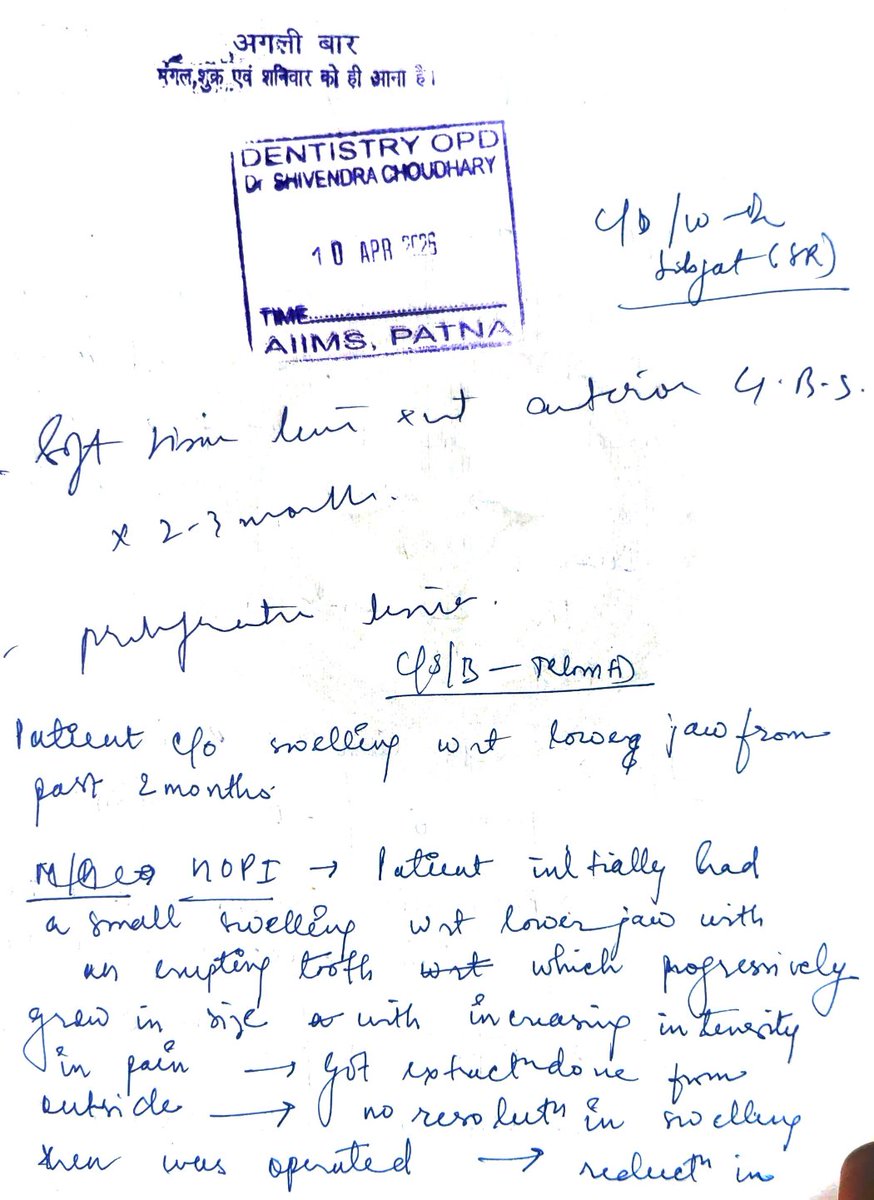 अगली बार
मंगल,शुक्र एवं शनिवार को ही आना है।
DENTISTRY OPD
Dr SHIVENDRA CHOUDHARY
10 APR 2026
TIME
AIIMS, PATNA
(SR)
Soft anterior G.B.S.
x 2-3 month.
C/S/B —
Patient c/o swelling wrt lower jaw from
past 2 months
HOPI → Patient initially had
a small swelling wrt lower jaw with
an erupting tooth wrt which progressively
grew in size with increasing intensity
in pain → got extractn done from
outside → no resolutn in swelling
then was operated → reductn in